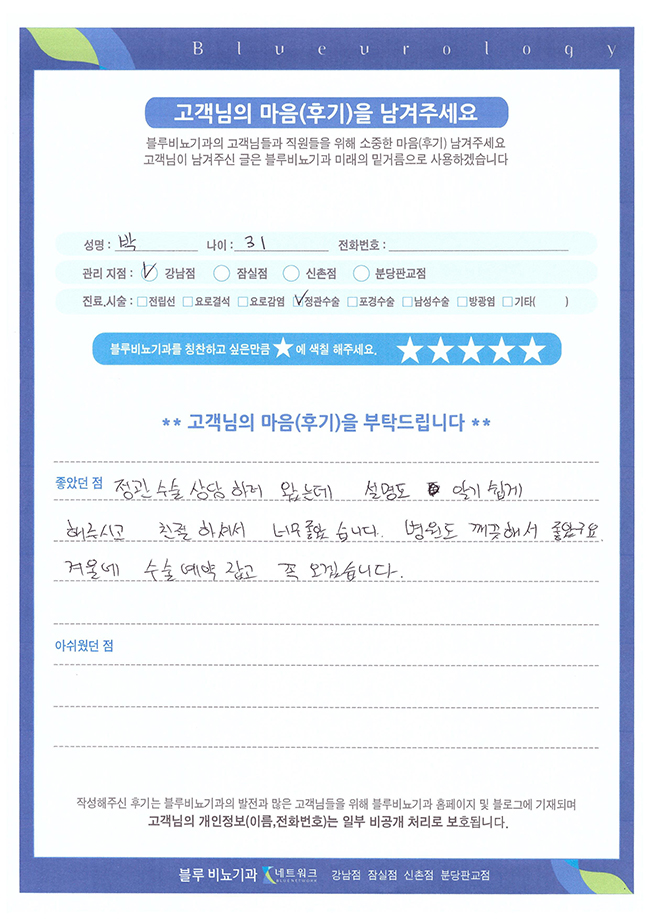 Blueurology
고객님의 마음(후기)을 남겨주세요
블루비뇨기과의 고객님들과 직원들을 위해 소중한 마음(후기) 남겨주세요
고객님이 남겨주신 글은 블루비뇨기과 미래의 밑거름으로 사용하겠습니다
성명 : 박 나이 : 31 전화번호 :
관리 지점 : 강남점 잠실점 신촌점 분당판교점
진료.시술 : 전립선 요로결석 요로감염 정관수술 포경수술 남성수술 방광염 기타( )
블루비뇨기과를 칭찬하고 싶은만큼 ★에 색칠 해주세요. ★★★★★
** 고객님의 마음(후기)을 부탁드립니다 **
좋았던 점 정관 수술 상담 하러 왔는데 설명도 알기 쉽게
해주시고 친절 하셔서 너무 좋았습니다. 병원도 깨끗해서 좋았구요.
겨울에 수술 예약 잡고 꼭 오겠습니다.
아쉬웠던 점
작성해주신 후기는 블루비뇨기과의 발전과 많은 고객님들을 위해 블루비뇨기과 홈페이지 및 블로그에 기재되며
고객님의 개인정보(이름,전화번호)는 일부 비공개 처리로 보호됩니다.
블루 비뇨기과 네트워크 BLUENETWORK 강남점 잠실점 신촌점 분당판교점